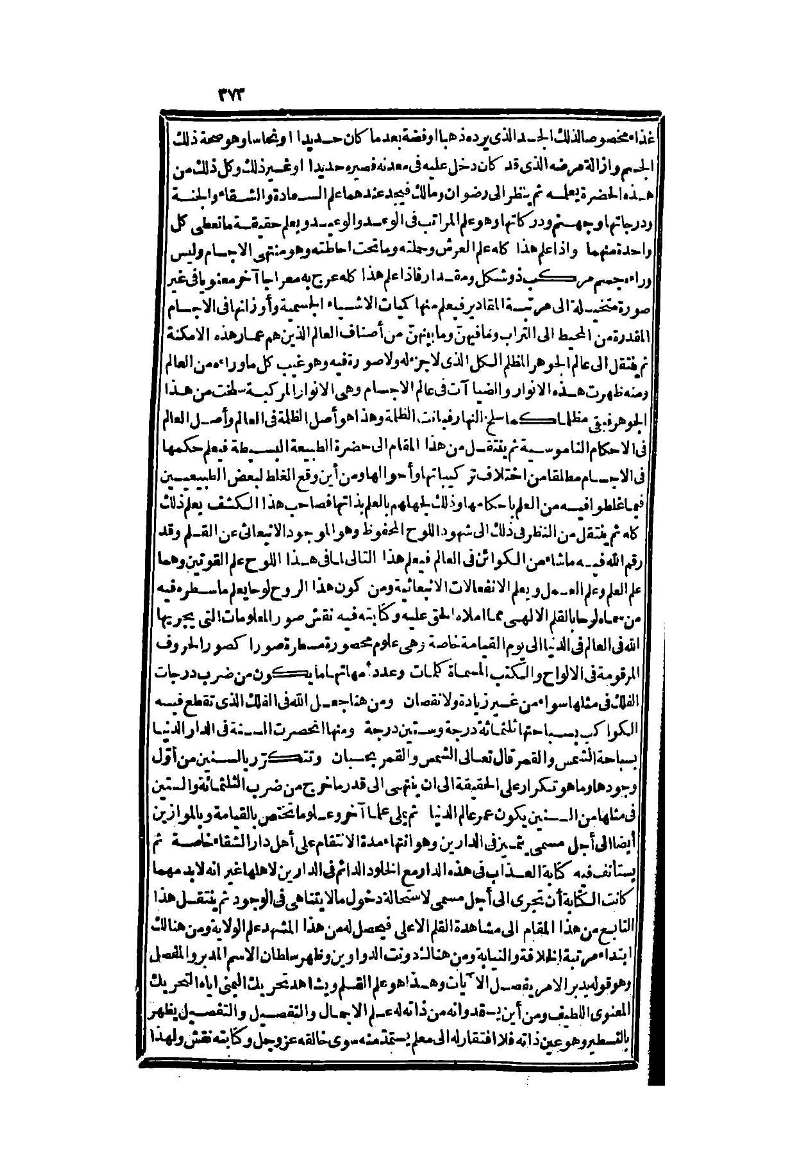 ٣٧٣
غذاء مخصوصا لذلك الجسد الذى يرده ذهبا أو فضة بعد ما كان حديدا أو نحاسا وهو صحة ذلك
الجسم وازالة مرضه الذى قد كان دخل عليه فى معدنه فصيره حديدا أو غير ذلك وكل ذلك من
هذه الحضرة يعلمه ثم ينظر الى رضوان ومالك فيجد عندهما علم السعادة والشقاء والجنة
ودرجاتها وجهنم ودركاتها وهو علم المراتب فى الوعد والوعيد ويعلم حقيقة ما تعطى كل
واحدة منهما واذا علم هذا كله علم العرش وحملته وما تحت احاطته وهو منتهى الاجسام وليس
وراءه جسم مركب ذو شكل ومقدار فاذا علم هذا كله عرج به معراجا آخر معنويا فى غير
صورة متخيلة الى مرتبة المقادير فيعلم منها كميات الاشياء الجسمية وأوزانها فى الاجسام
المقدرة من المحيط الى التراب وما فيهنّ وما بينهنّ من أصناف العالم الذين هم عمار هذه الامكنة
ثم ينتقل الى عالم الجوهر المظلم الكل الذى لا جزء له ولا صورة فيه وهو غيب كل ما وراءه من العالم
ومنه ظهرت هذه الانوار والضياآت فى عالم الاجسام وهى الانوار المركبة سلخت من هذا
الجوهر فبقى مظلما كما سلخ النهار فبانت الظلمة وهذا هو أصل الظلمة فى العالم وأصل العالم
فى الاحكام الناموسية ثم ينتقل من هذا المقام الى حضرة الطبيعة البسيطة فيعلم حكمها
فى الاجسام مطلقا من اختلاف تركيباتها وأحوالها ومن أين وقع الغلط لبعض الطبيعيين
فيما غلطوا فيه من العلم باحكامها وذلك لجهلهم بالعلم بذاتها فصاحب هذا الكشف يعلم ذلك
كله ثم ينتقل من النظر فى ذلك الى شهود اللوح المحفوظ وهو الموجود الانبعاثى عن القلم وقد
رقم الله فيه ما شاء من الكوائن فى العالم فيعلم هذا التالى لما فى هذا اللوح علم القوتين وهما
علم العلم وعلم العمل ويعلم الانفعالات الانبعاثية ومن كون هذا الروح لوحا يعلم ما سطره فيه
من سماه لوحا بالقلم الالهى مما املاه الحق عليه وكتابته فيه نقش صور المعلومات التى يجريها
الله فى العالم فى الدنيا الى يوم القيامة خاصة وهى علوم محصورة مسطرة صورا كصور الحروف
المرقومة فى الالواح والكتب المسماة كلمات وعدد أمهاتها ما يكون من ضرب درجات
الفلك فى مثلها سواء من غير زيادة ولا نقصان ومن هنا جعل الله فى الفلك الذى تقطع فيه
الكواكب بسباحتها ثلثمائة درجة وستين درجة ومنها انحصرت السنة فى الدار الدنيا
بسباحة الشمس والقمر قال تعالى الشمس والقمر بحسبان وتتكرّر بالسنين من أوّل
وجودها وما هو تكرار على الحقيقة الى ان ينتهى الى قدر ما خرج من ضرب الثلثمائة والستين
فى مثلها من السنين يكون عمر عالم الدنيا ثم يملى علما آخر وعلوما تختص بالقيامة وبالموازين
أيضا الى أجل مسمى يتميز فى الدارين وهو انتهاء مدة الانتقام على أهل دار الشقاء خاصة ثم
يستأنف فيه كتابة العذاب فى هذه الدار مع الخلود الدائم فى الدارين لاهلها غير انه لا بد مهما
كانت الكتابة أن تجرى الى أجل مسمى لاستحالة دخول ما لا يتناهى فى الوجود ثم ينتقل هذا
التابع من هذا المقام الى مشاهدة القلم الاعلى فيحصل له من هذا المشهد علم الولاية ومن هنالك
ابتداء مرتبة الخلافة والنيابة ومن هنالك دونت الدواوين وظهر سلطان الاسم المدبر والمفصل
وهو قوله يدبر الامر يفصل الآيات وهذا هو علم القلم ويشاهد تحريك اليمنى اياه التحريك
المعنوى اللطيف ومن أين يستمد وانه من ذاته له علم الاجمال والتفصيل والتفصيل يظهر
بالتسطير وهو عين ذاته فلا افتقار له الى معلم يستمدّ منه سوى خالقه عز وجل وكتابته نقش ولهذا